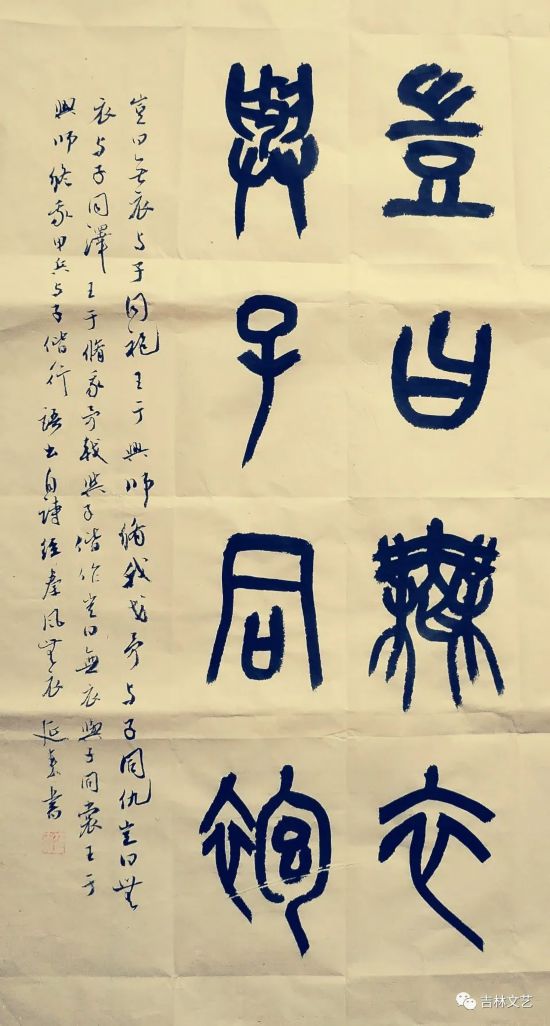 豈曰無衣
與子同袍
豈曰無衣与子同袍王于興師脩我戈矛与子同仇豈曰無
衣与子同澤王于脩我矛戟與子偕作豈曰無衣與子同裳王于
興師修我甲兵与子偕行 語出自詩經秦風無衣 延書
吉林文艺